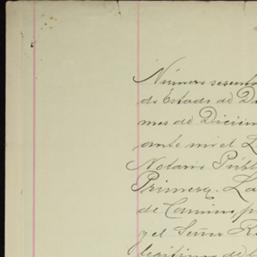 Número sesent
do Estado de Du
mes de Diciem
ante mi el L
Notario Públ
Primera. La
de Camino p
y el Señor R
legítimo de l